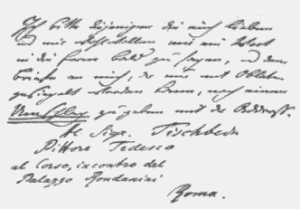 Ich bitte diejenigen die mich lieben
und mir wohlwollen mir ein Wort
in die Ferne bald zu sagen, und dem
Briefe an mich, der nur mit Oblaten
gesiegelt werden kann, noch einen
Umschlag zu geben mit der Address.
Al Sigr. Tischbein
Pittore Tedesco
al Corso, incontro del
Palazzo Rondanini
Roma.